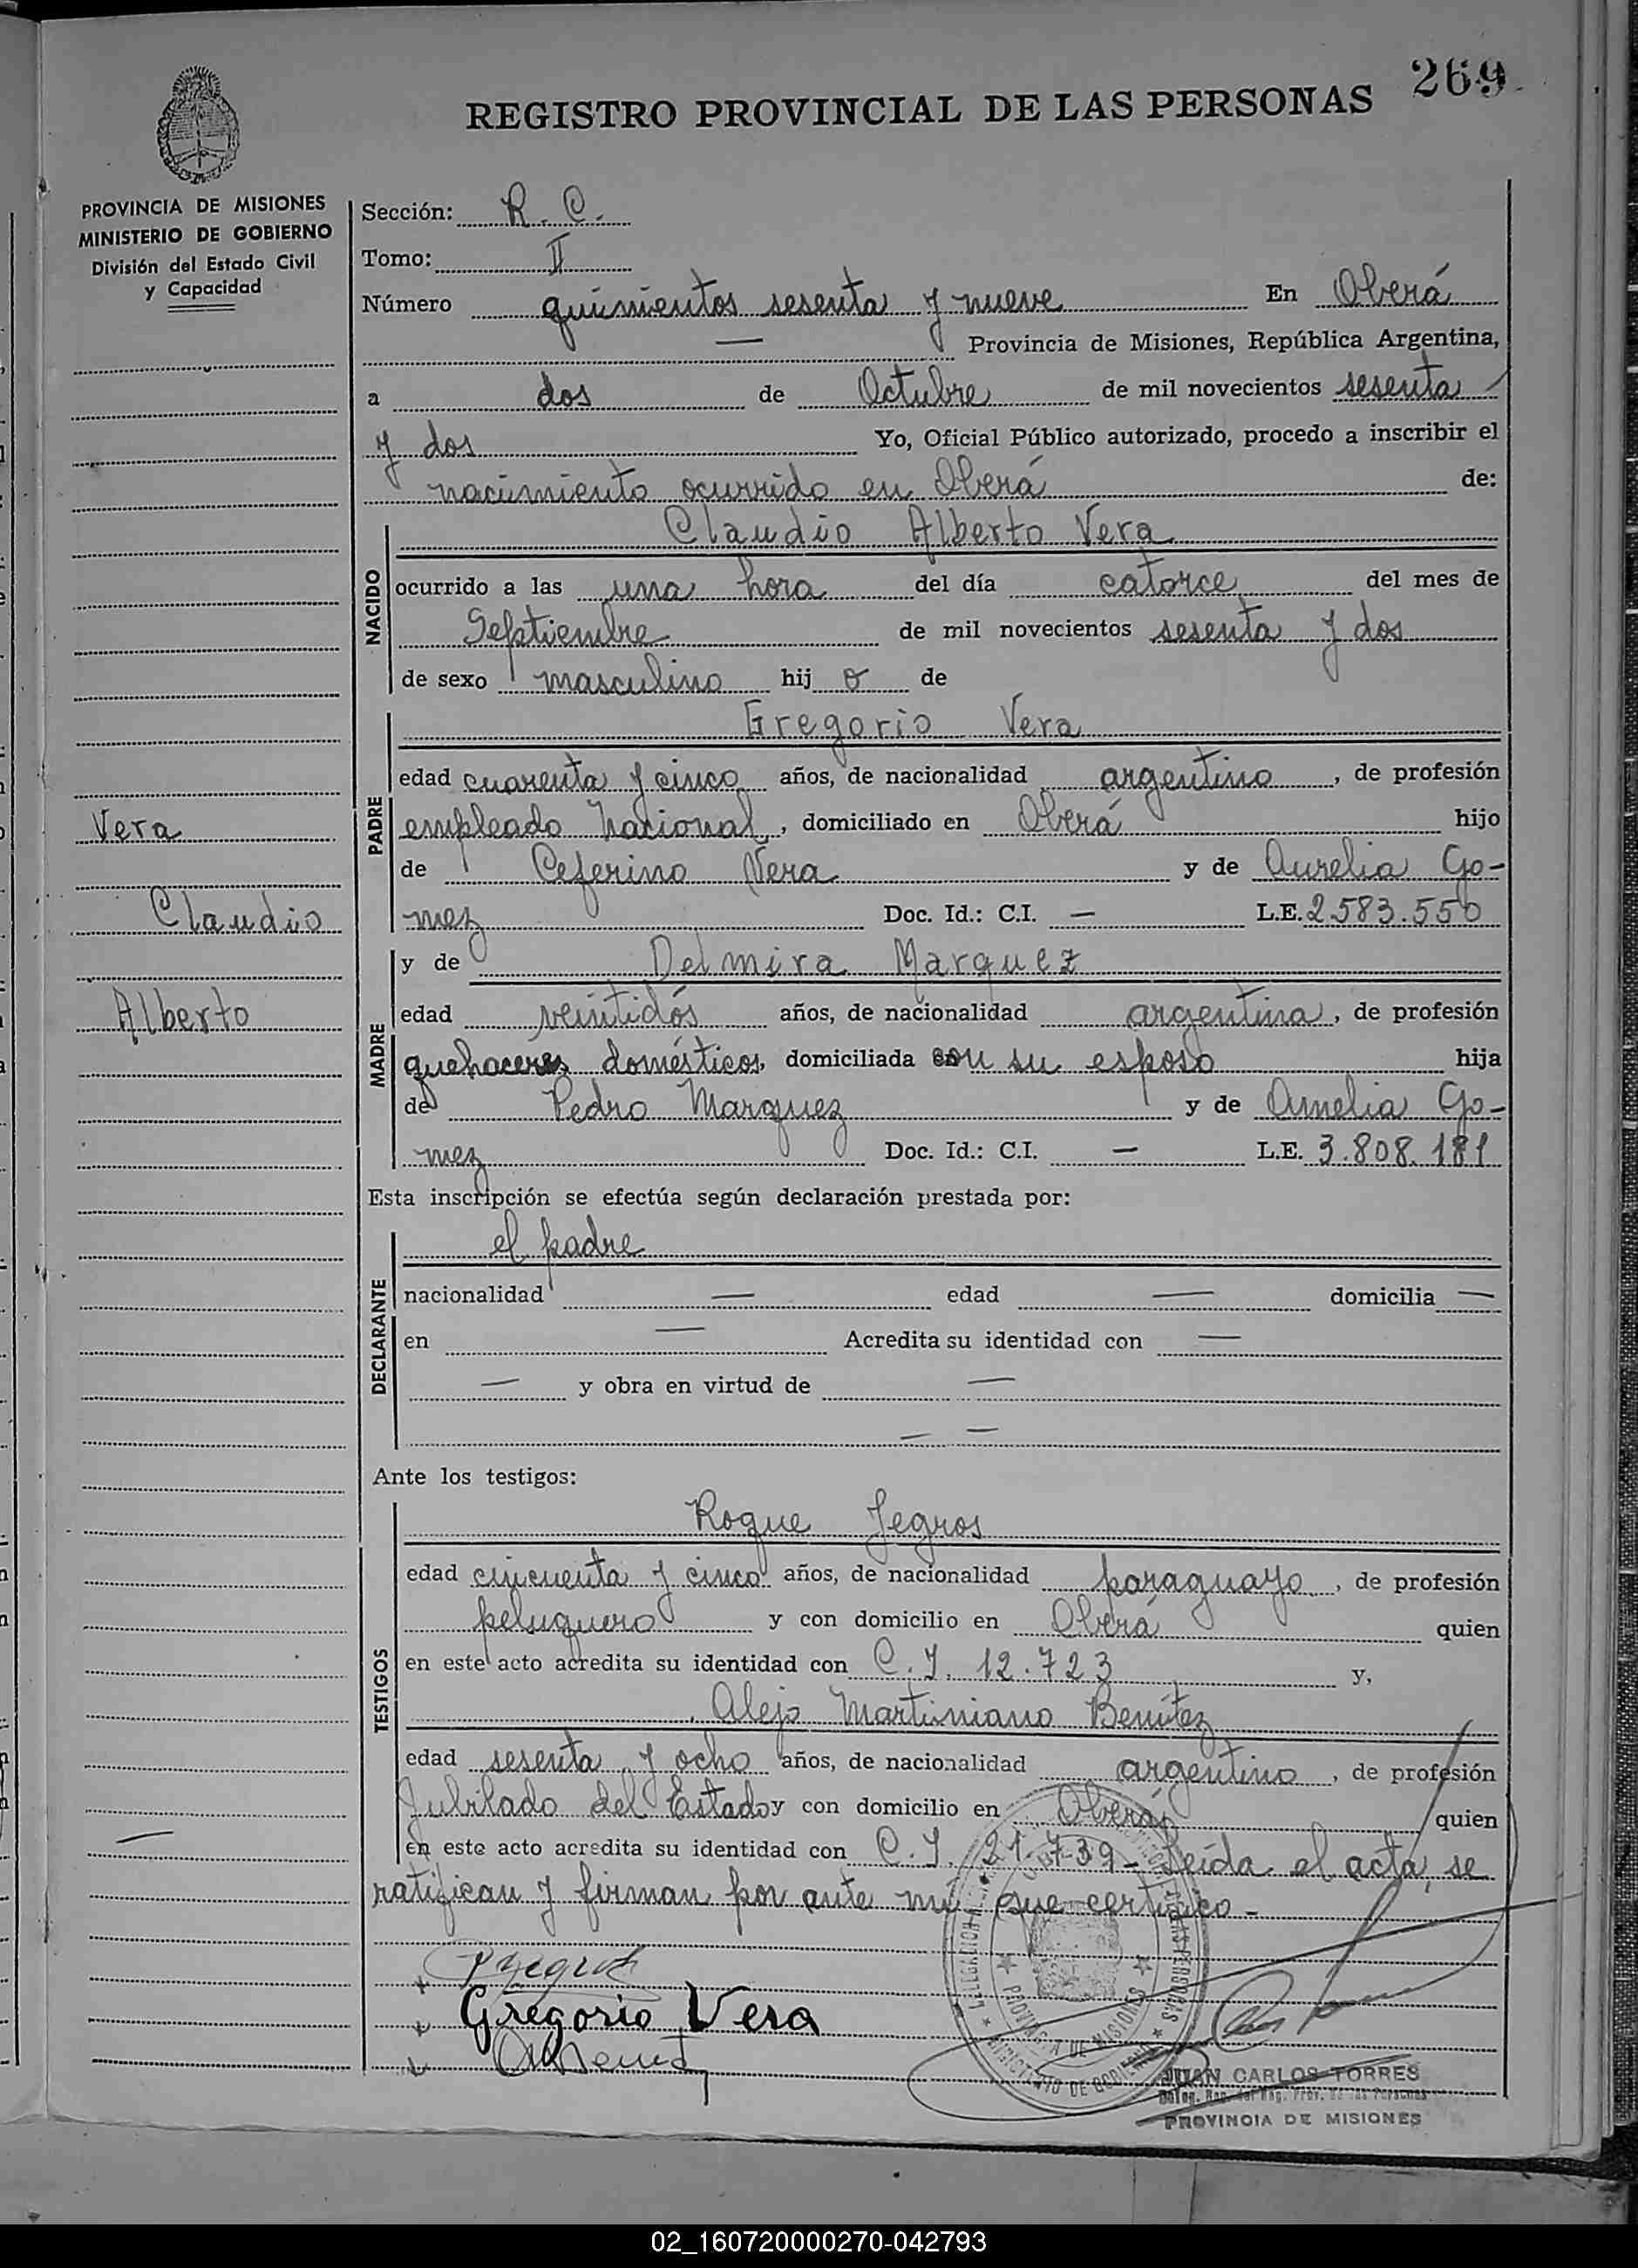 269
REGISTRO PROVINCIAL DE LAS PERSONAS
PROVINCIA DE MISIONES
MINISTERIO DE GOBIERNO
División del Estado Civil
y Capacidad
Vera
Claudio
Alberto
Sección: R. C.
Tomo: II
Número quinientos sesenta y nueve En Oberá
— Provincia de Misiones, República Argentina,
a dos de Octubre de mil novecientos sesenta
y dos Yo, Oficial Público autorizado, procedo a inscribir el
nacimiento ocurrido en Oberá de:
NACIDO
Claudio Alberto Vera
ocurrido a las una hora del día catorce del mes de
Septiembre de mil novecientos sesenta y dos
de sexo masculino hij o de
PADRE
Gregorio Vera
edad cuarenta y cinco años, de nacionalidad argentino, de profesión
empleado Nacional, domiciliado en Oberá hijo
de Ceferino Vera y de Aurelia Go-
mez Doc. Id.: C.I. — L.E. 2.583.550
MADRE
y de Delmira Marquez
edad veintidós años, de nacionalidad argentina, de profesión
quehaceres domésticos, domiciliada con su esposo hija
de Pedro Marquez y de Amelia Go-
mez Doc. Id.: C.I. — L.E. 3.808.181
Esta inscripción se efectúa según declaración prestada por:
DECLARANTE
el padre
nacionalidad — edad — domicilia —
en — Acredita su identidad con —
— y obra en virtud de —
— —
Ante los testigos:
TESTIGOS
Roque Yegros
edad cincuenta y cinco años, de nacionalidad paraguayo, de profesión
peluquero y con domicilio en Oberá quien
en este acto acredita su identidad con C.I. 12.723 y,
Alejo Martiniano Benítez
edad sesenta y ocho años, de nacionalidad argentino, de profesión
Jubilado del Estado y con domicilio en Oberá quien
en este acto acredita su identidad con C.I. 21.739 - Leída el acta, se
ratifican y firman por ante mí que certifico -
Gregorio Vera
PROVINCIA DE MISIONES
JUAN CARLOS TORRES
PROVINCIA DE MISIONES
02_160720000270-042793